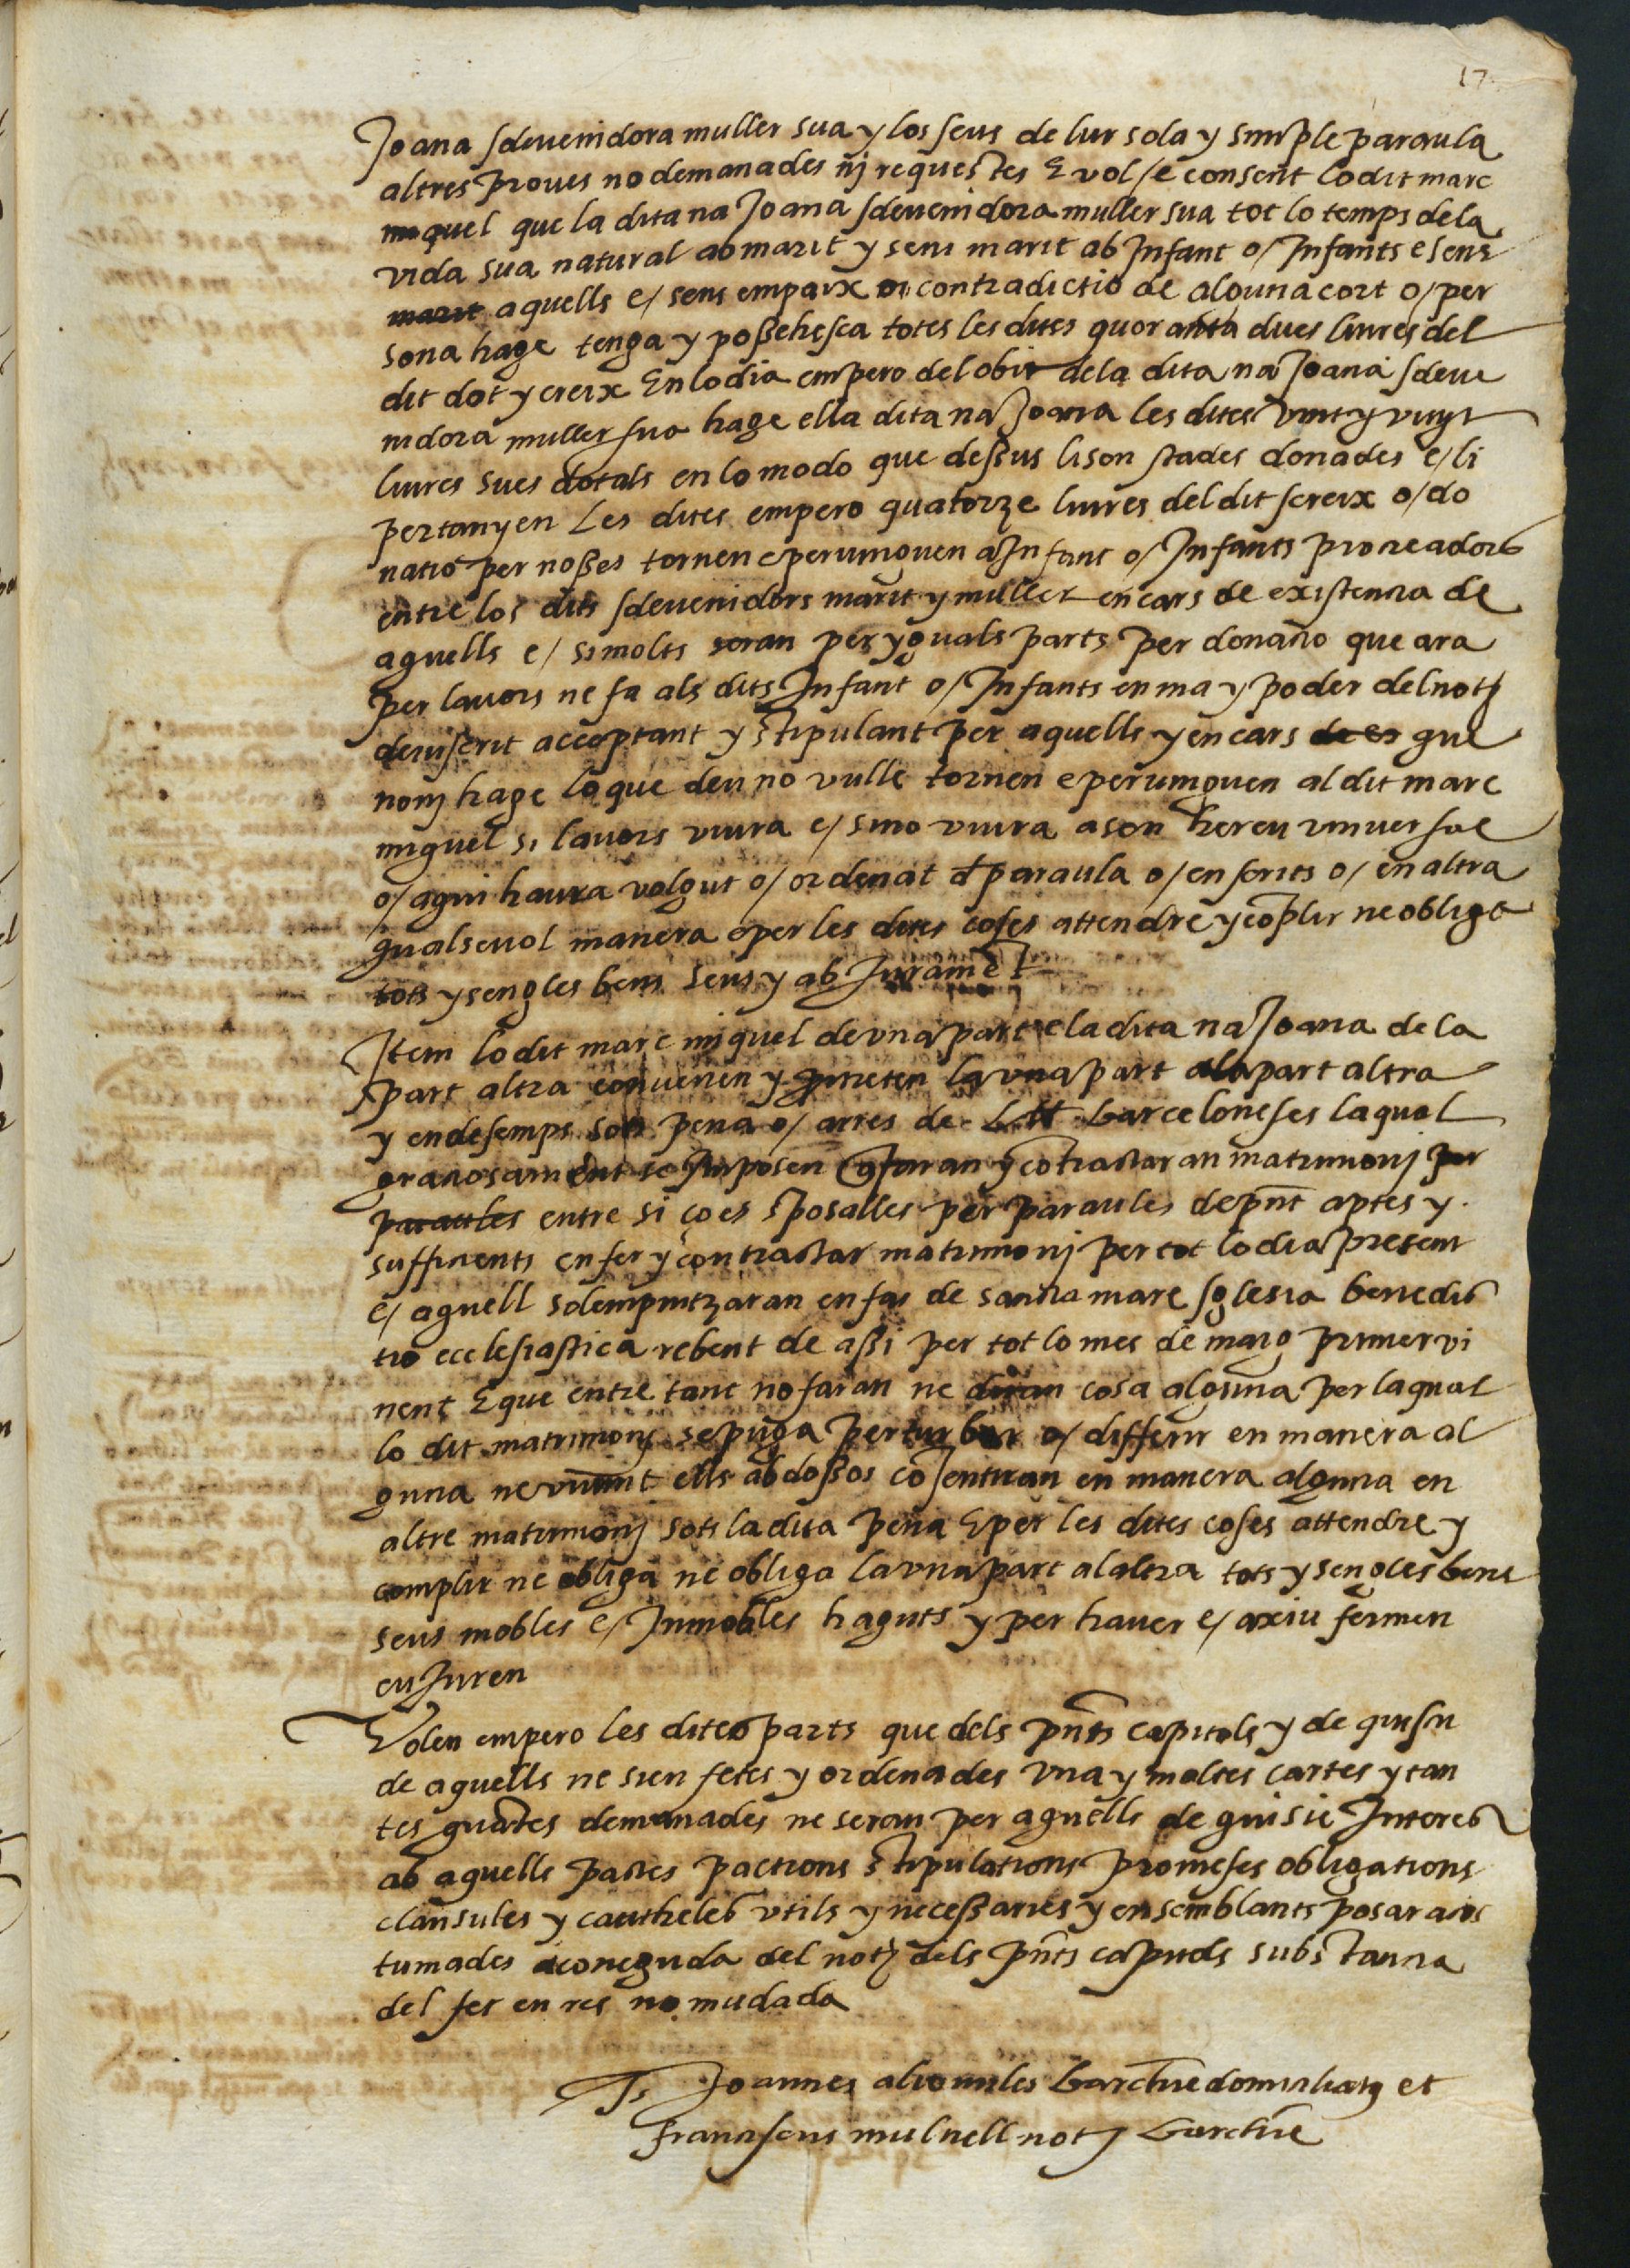 17
Joana sdevenidora muller sua y los seus de lur sola y simple paraula
altres proves no demanades nj requestes E vol /e consent lo dit marc
miquel que la dita na Joana sdevenidora muller sua tot lo temps de la
vida sua natural ab marit y sens marit ab Infant o/ Infants e sens
marit aquells e/ sens empaix o contradictio de alguna cort o/ per
sona hage tenga y possehesca totes les dites quoranta dues liures del
dit dot y creix En lo dia empero del obit de la dita na Joana sdeve
nidora muller sua hage ella dita na Joana les dites vint y vuyt
liures sues dotals en lo modo que dessus li son stades donades e/ li
pertanyen Les dites empero quatorze liures del dit screix o/ do
natio per nosses tornen e pervinguen a Infant o/ Infants procreadors
entre los dits sdevenidors marit y muller en cars de existencia de
aquells e/ si molts seran per yguals parts per donatio que ara
per lavors ne fa als dits Infant o/ Infants en ma y poder del notj
devuscrit acceptant y stipulant per aquells y en cars de es que
nonj hage lo que deu no vulle tornen e pervinguen al dit marc
miquel si lavors viura e/ sino viura a son hereu universal
o/ a qui haura volgut o/ ordenat d paraula o/ en scrits o/ en altra
qualsevol manera e per les dites coses attendre y coplir ne obliga
tots y sengles bens seus y ab Jurame t
Item lo dit marc miquel de una part e la dita na Joana de la
part altra convenen y prometen la una part a la part altra
y endesemps sots pena o/ arres de L ₶ barceloneses la qual
graciosament se Imposen q faran y cotractaran matrimonj per
paraules entre si ço es sposalles per paraules de pnt aptes y
sufficients en fer y contractar matrimonj per tot lo dia present
e/ aquell solempnitzaran en fas de sancta mare sglesia benedic
tio ecclesiastica rebent de assi per tot lo mes de maig primer vi
nent E que entre tant no faran ne diran cosa alguna per la qual
lo dit matrimonj se puga perturbar o/ differir en manera al
guna ne vivint ells abdossos cosentiran en manera alguna en
altre matrimonj sots la dita pena E per les dites coses attendre y
complir ne obliga ne obliga la una part a la altra tots y sengles bens
seus mobles e/ Inmobles haguts y per haver e/ axiu fermen
eu Juren
Volen empero les dites parts que dels pnts capitols y de quiscu
de aquells ne sien fetes y ordenades una y moltes cartes y tan
tes quantes demanades ne seran per aquells de qui sie Interes
ab aquells pactes pactions stipulations promeses obligations
clausules y cautheles utils y necessaries y en semblants posar acos
tumades a coneguda del notj dels pnts capitols substancia
del fet en res no mudada
Ts Joannes miles barcne domiciliatq et
franciscus mulnell notj barcne